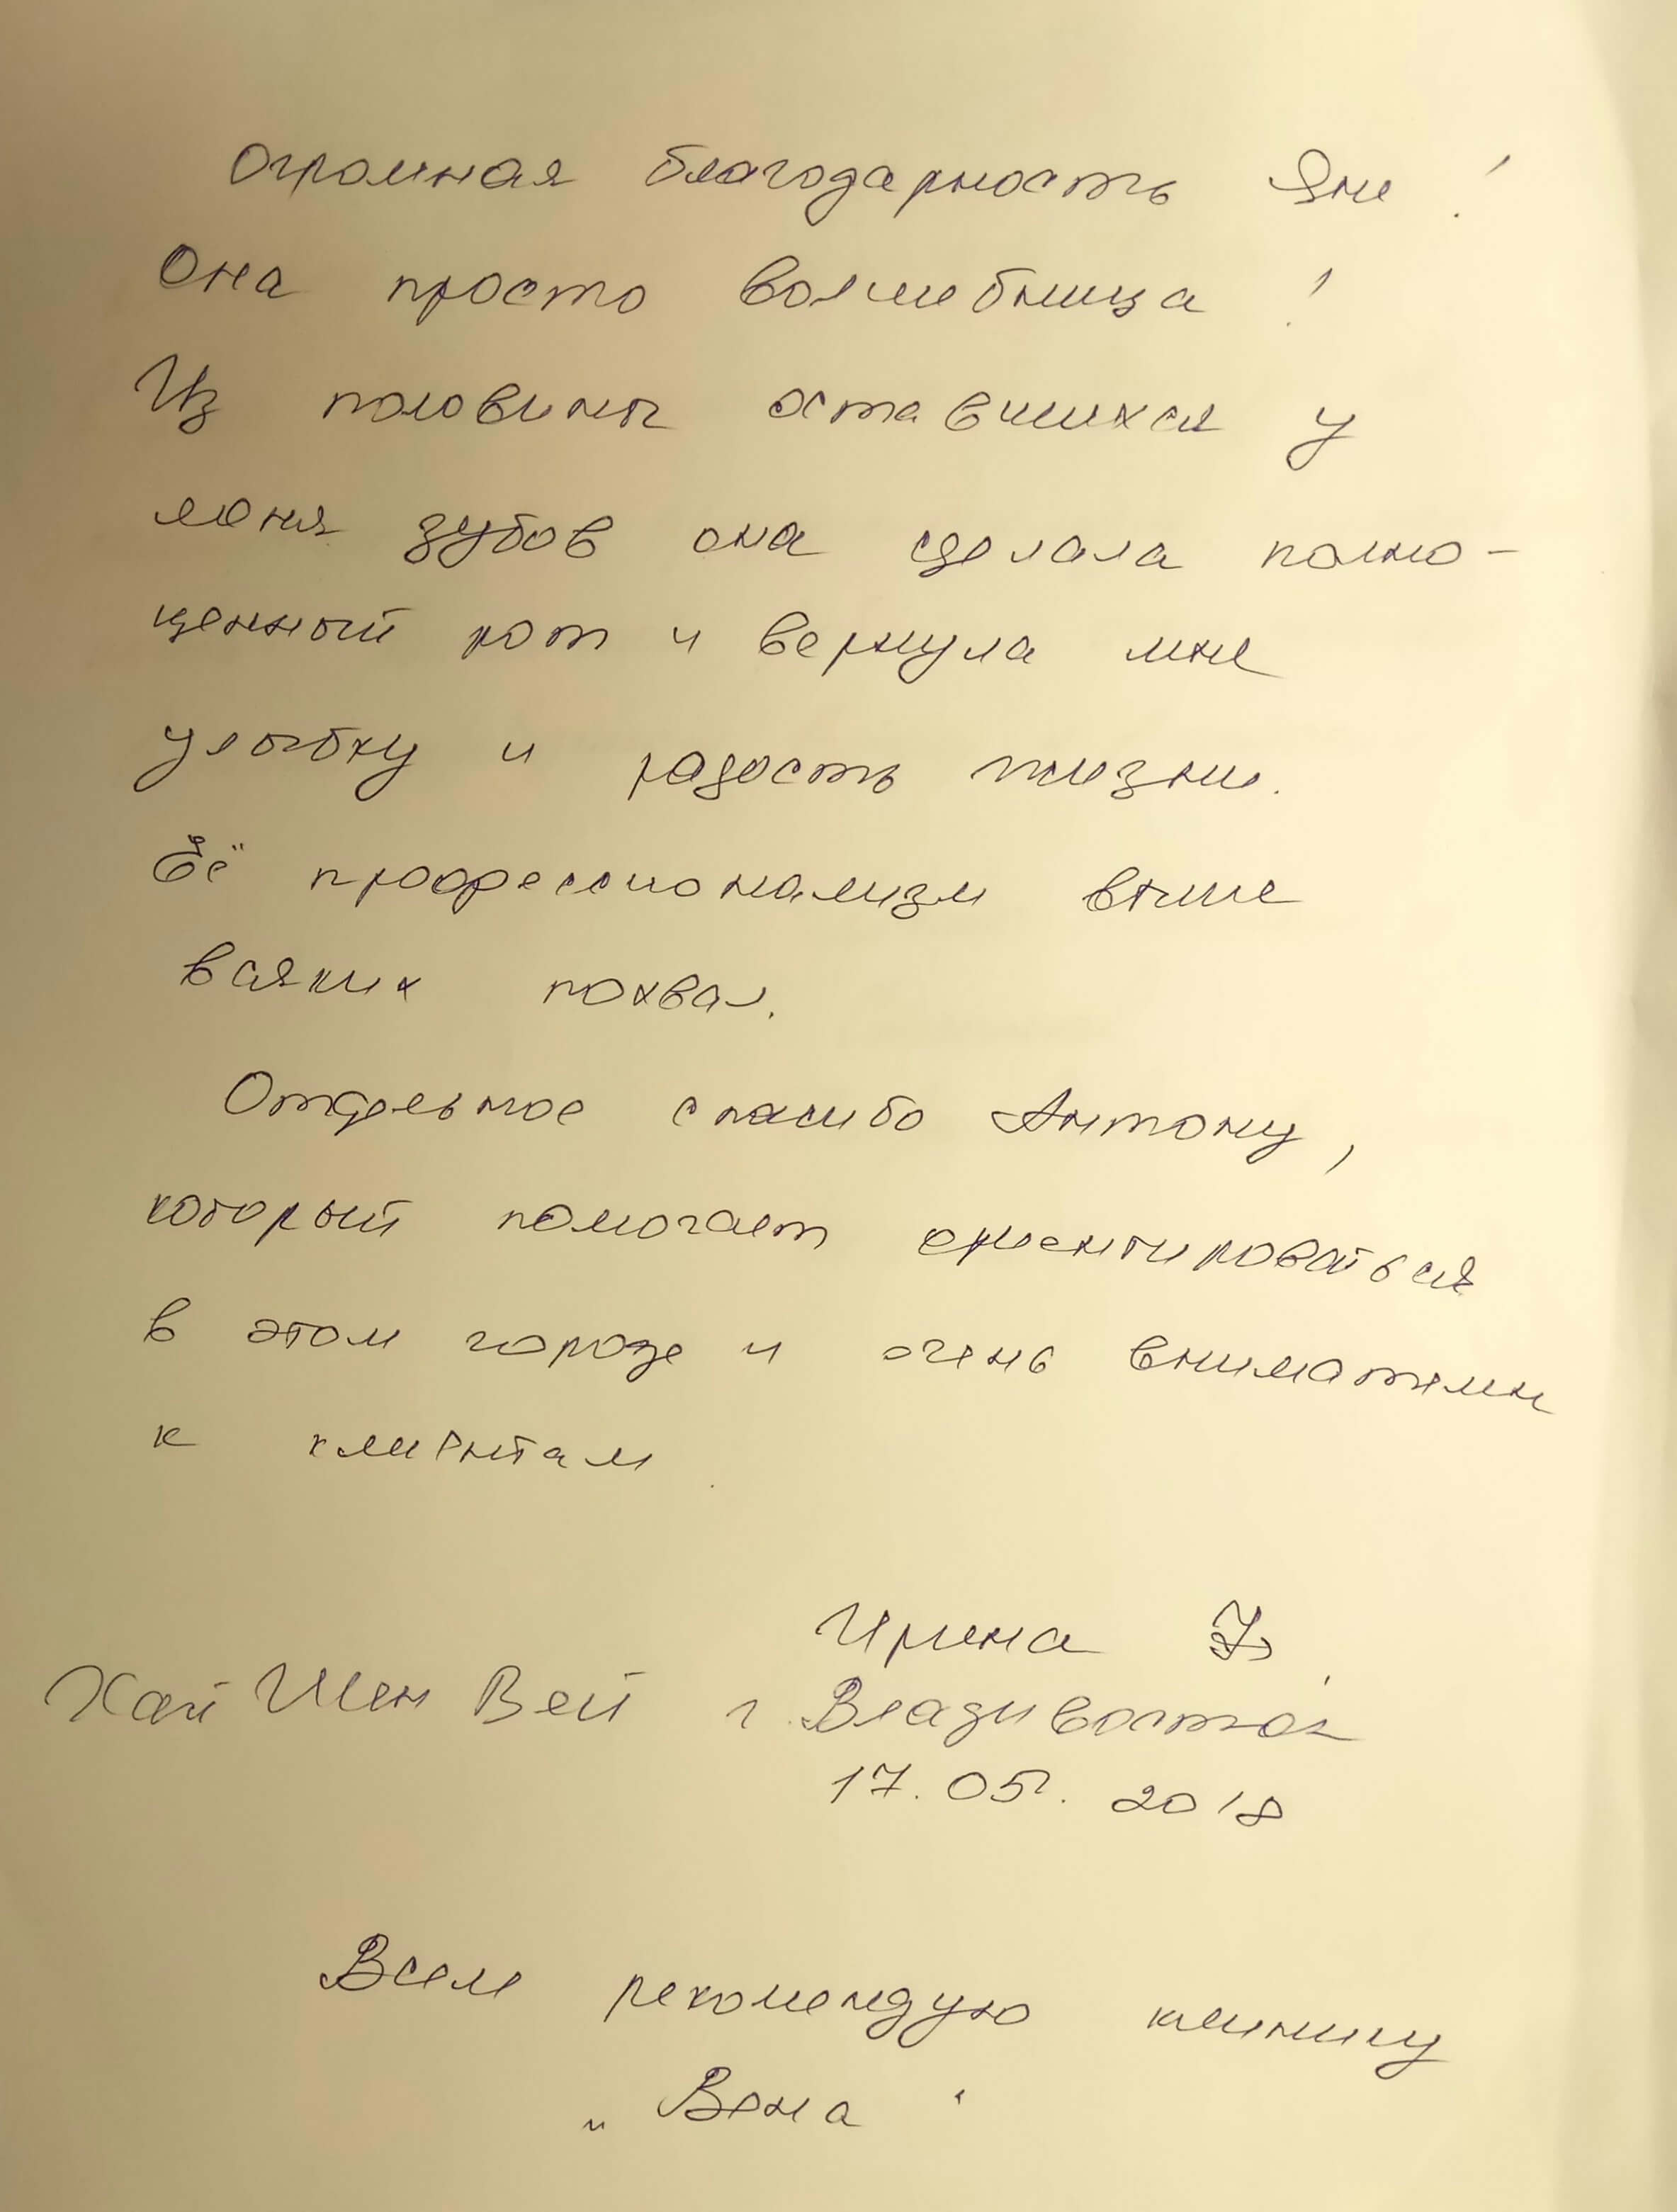 Огромная благодарность Яне!
Она просто волшебница!
Из половины оставшихся у
меня зубов она сделала полно-
ценный рот и вернула мне
улыбку и радость жизни.
Её профессионализм выше
всяких похвал.
Отдельное спасибо Антону,
который помогает ориентироваться
в этом городе и очень
к клиентам.
Ирина
Хай Шен Вей г. Владивосток
17.05.2018
Всем рекомендую клинику
"Вена"